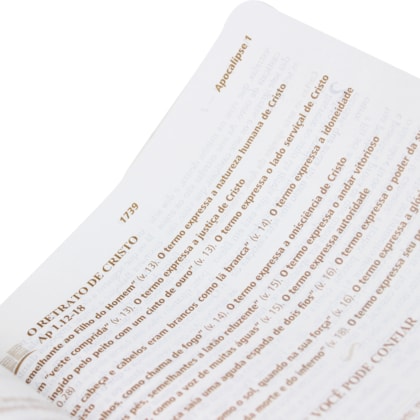 Apocalipse 1
1739
O RETRATO DE CRISTO
Ap 1.12-18
melhante ao Filho do Homem" (v. 13). O termo expressa a natureza humana de Cristo
em "veste comprida" (v. 13). O termo expressa a justiça de Cristo
ngido pelo peito com um cinto de ouro" (v. 13). O termo expressa o lado serviçal de Cristo
ua cabeça e cabelos eram brancos como lã branca" (v. 14). O termo expressa a idoneidade
olhos, como chama de fogo" (v. 14). O termo expressa a onisciência de Cristo
pés, semelhantes a latão reluzente" (v. 15). O termo expressa o andar vitorioso
como a voz de muitas águas" (v. 15). O termo expressa autoridade
ca saía uma aguda espada de dois fios" (v. 16). O termo expressa o poder da
o sol, quando na sua força" (v. 16). O termo expressa a glór
da morte e do inferno" (v. 18). O termo expressa se
OCÊ PODE CONFIAR